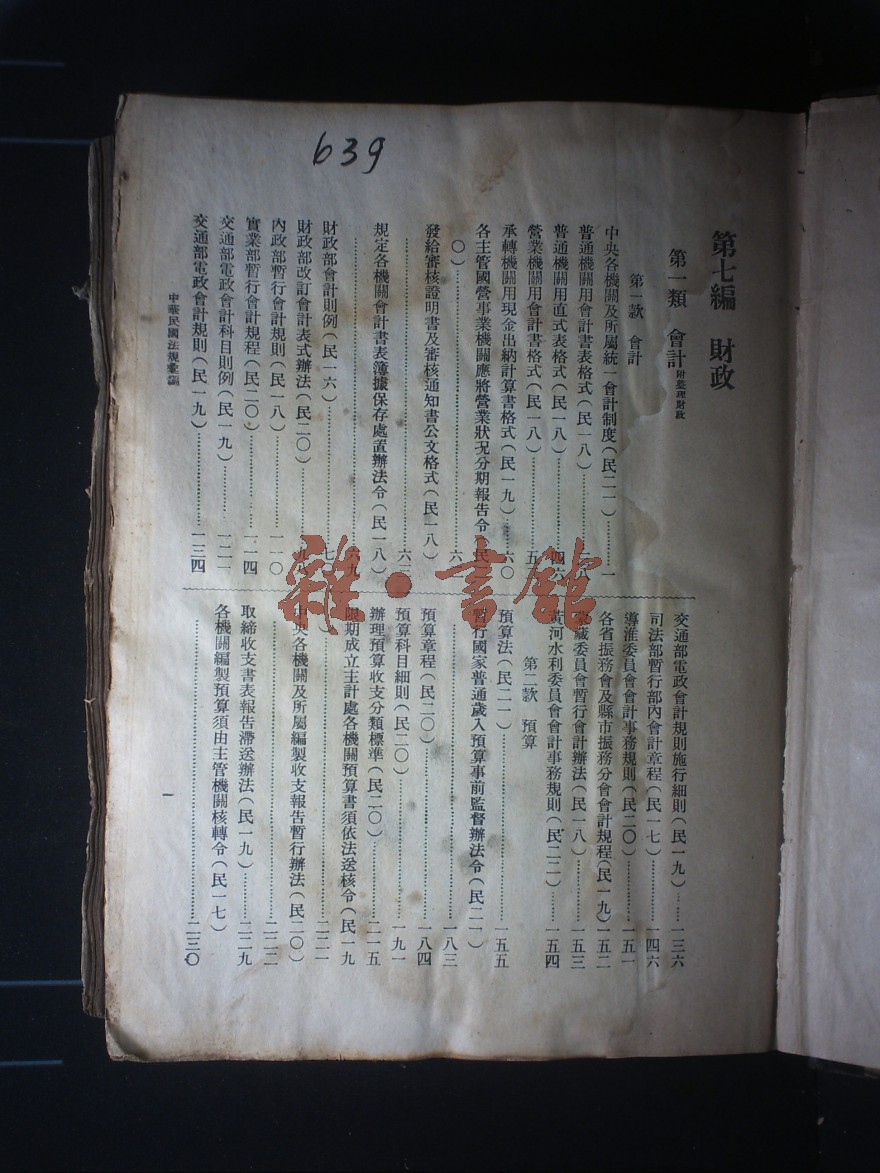 639
第七編　財政
第一類　會計附整理財政
第一款　會計
中央各機關及所屬統一會計制度（民二一）…………一
普通機關用會計書表格式（民一八）…………
普通機關用直式表格式（民一八）…………四
營業機關用會計書格式（民一八）…………五
承轉機關用現金出納計算書格式（民一九）……六〇
各主管國營事業機關應將營業狀況分期報告令（民二
〇）…………六
發給審核證明書及審核通知書公文格式（民一八）
…………六
規定各機關會計書表簿據保存處置辦法令（民一八）
…………六九
財政部會計則例（民一六）…………七
財政部改訂會計表式辦法（民二〇）…………
內政部暫行會計規則（民一八）…………一一〇
實業部暫行會計規程（民二〇）…………一一四
交通部電政會計科目則例（民一九）…………一二一
交通部電政會計規則（民一九）…………一三四
交通部電政會計規則施行細則（民一九）……一三六
司法部暫行部內會計章程（民一七）…………一四六
導淮委員會會計事務規則（民二〇）…………一五一
各省振務會及縣市振務分會會計規程（民一九）一五二
蒙藏委員會暫行會計辦法（民一八）…………一五三
黃河水利委員會會計事務規則（民二二）……一五四
第二款　預算
預算法（民二一）…………一五五
暫行國家普通歲入預算事前監督辦法令（民二一）
…………一八三
預算章程（民二〇）…………一八四
預算科目細則（民二〇）…………一九一
辦理預算收支分類標準（民二〇）…………二一五
限期成立主計處各機關預算書須依法送核令（民一九
…………二二一
中央各機關及所屬編製收支報告暫行辦法（民二〇）
…………二二二
取締收支書表報告滯送辦法（民一九）…………二二九
各機關編製預算須由主管機關核轉令（民一七）
…………二三〇
中華民國法規彙編
一
雜·書館